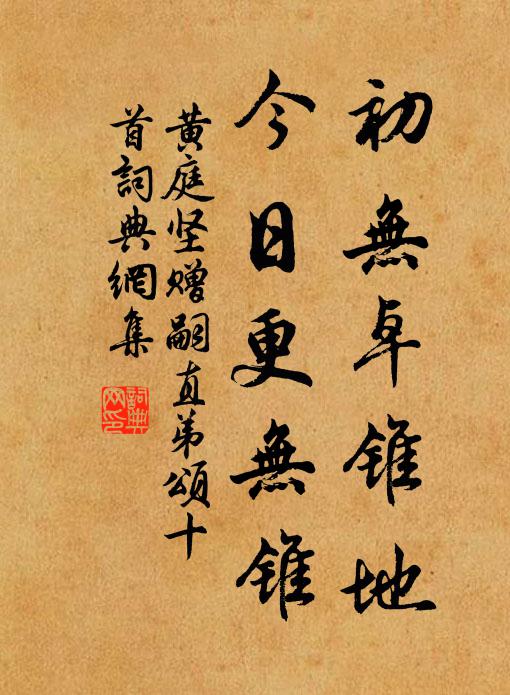 初無卓錐地
今日更無錐
黄庭坚赠嗣直弟頌十
首詞典網集
詞典
网印